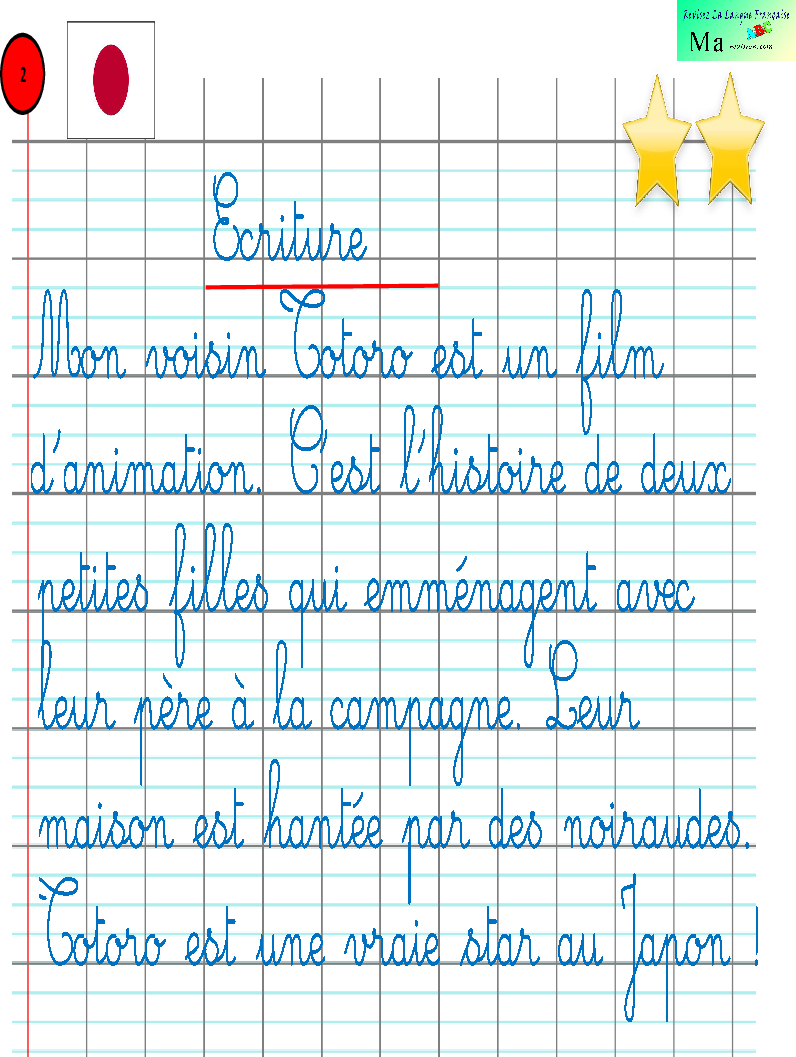 Revisez La Langue Française
Ma
2
Ecriture
Mon voisin Totoro est un film
d'animation. C'est l'histoire de deux
petites filles qui emménagent avec
leur père à la campagne. Leur
maison est hantée par des noiraudes.
Totoro est une vraie star au Japon !